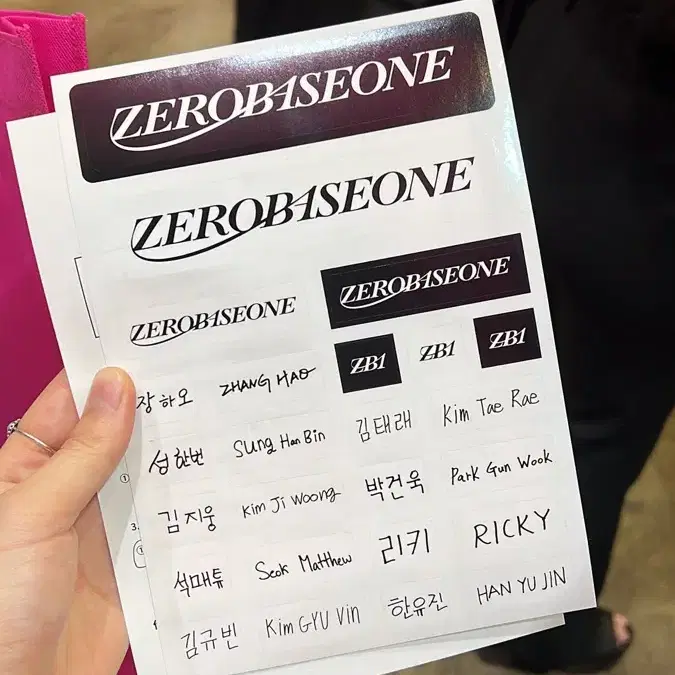 ZEROBASEONE
ZEROBASEONE
ZEROBASEONE
ZEROBASEONE
ZB1 ZB1 ZB1
장하오 ZHANG HAO
성한빈 Sung Han Bin 김태래 Kim Tae Rae
김지웅 Kim Ji Woong 박건욱 Park Gun Wook
석매튜 Seok Matthew 리키 RICKY
김규빈 Kim GYU Vin 한유진 HAN YU JIN
①
3.